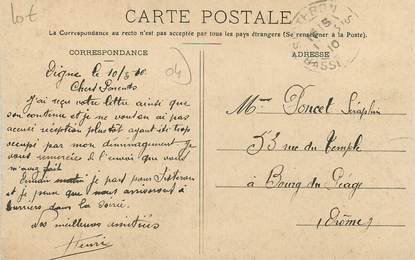 lot
CARTE POSTALE
La Correspondance au recto n'est pas acceptée par tous les pays étrangers (Se renseigner à la Poste).
CORRESPONDANCE
ADRESSE
Digne le 10/5 10
04
Chers Parents
J'ai reçu votre lettre ainsi que
son contenu et je ne vous en ai pas
accusé réception plus tôt ayant été trop
occupé par mon déménagement Je
vous remercie de l'envoi que vous
m'avez fait
Demain matin je part pour Sisteron
et je pense que nous arriverons à
dans la soirée.
Vos meilleures amitiées
Henri
Mme Poncet Séraphin
53 rue du Temple
à Bourg du Péage
(Drôme)